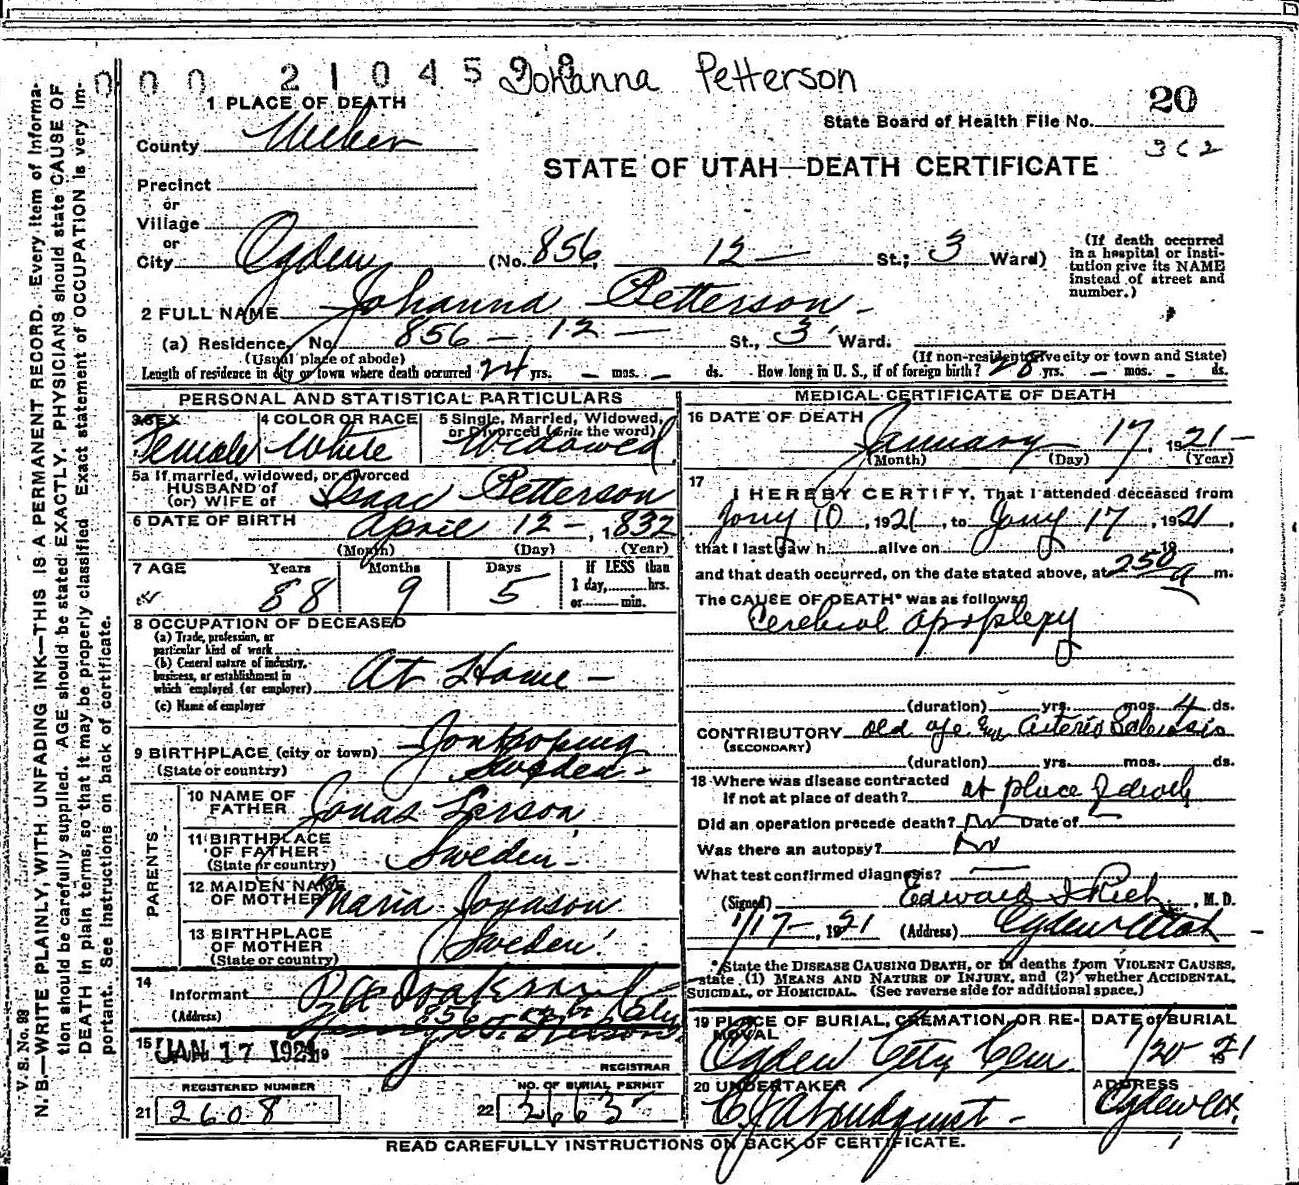 0 0 0 2 1 0 4 5 9 8 Johanna Petterson
20
State Board of Health File No.
362
STATE OF UTAH—DEATH CERTIFICATE
1 PLACE OF DEATH
County Weber
Precinct
or
Village
or
City Ogden (No. 856, 12 — St.; 3 Ward)
(If death occurred in a hospital or institution give its NAME instead of street and number.)
2 FULL NAME Johanna Petterson
(a) Residence, No. 856 — 12 — St., 3 Ward.
(Usual place of abode) (If non-resident give city or town and State)
Length of residence in city or town where death occurred 24 yrs. — mos. — ds. How long in U. S., if of foreign birth? 28 yrs. — mos. - ds.
PERSONAL AND STATISTICAL PARTICULARS
3 SEX Female
4 COLOR OR RACE White
5 Single, Married, Widowed, or Divorced (write the word) Widowed
5a If married, widowed, or divorced
HUSBAND of
(or) WIFE of Isaac Petterson
6 DATE OF BIRTH April 12 —, 1832
(Month) (Day) (Year)
7 AGE Years 88 Months 9 Days 5
If LESS than
1 day, hrs.
or min.
8 OCCUPATION OF DECEASED
(a) Trade, profession, or
particular kind of work
(b) General nature of industry,
business, or establishment in
which employed (or employer) At Home —
(c) Name of employer
9 BIRTHPLACE (city or town) Jonkoping
(State or country) Sweden -
PARENTS
10 NAME OF FATHER Jonas Larson
11 BIRTHPLACE OF FATHER (State or country) Sweden -
12 MAIDEN NAME OF MOTHER Maria Jonason
13 BIRTHPLACE OF MOTHER (State or country) Sweden
14 Informant
(Address) 856
15 JAN 17 1921 19
REGISTRAR
REGISTERED NUMBER
21 2608
NO. OF BURIAL PERMIT
22 3663
MEDICAL CERTIFICATE OF DEATH
16 DATE OF DEATH
January 17, 1921 —
(Month) (Day) (Year)
17 I HEREBY CERTIFY, That I attended deceased from
Jany 10, 1921, to Jany 17, 1921,
that I last saw h alive on 19 ,
and that death occurred, on the date stated above, at 250 a m.
The CAUSE OF DEATH* was as follows:
Cerebral apoplexy
(duration) yrs. mos. 4 ds.
CONTRIBUTORY old age and arterio Sclerosis
(SECONDARY)
(duration) yrs. mos. ds.
18 Where was disease contracted
if not at place of death? at place of death
Did an operation precede death? No Date of
Was there an autopsy? No
What test confirmed diagnosis? —
(Signed) Edward I Rich, M. D.
1/17 —, 1921 (Address) Ogden Utah
*State the DISEASE CAUSING DEATH, or in deaths from VIOLENT CAUSES,
state (1) MEANS AND NATURE OF INJURY, and (2) whether ACCIDENTAL,
SUICIDAL, or HOMICIDAL. (See reverse side for additional space.)
19 PLACE OF BURIAL, CREMATION, OR REMOVAL
Ogden City Cem
DATE of BURIAL
1/20 1921
20 UNDERTAKER
Lindquist -
ADDRESS
Ogden
READ CAREFULLY INSTRUCTIONS ON BACK OF CERTIFICATE.
V. S. No. 98
N. B.—WRITE PLAINLY, WITH UNFADING INK—THIS IS A PERMANENT RECORD. Every item of information should be carefully supplied. AGE should be stated EXACTLY. PHYSICIANS should state CAUSE OF DEATH in plain terms, so that it may be properly classified. Exact statement of OCCUPATION is very important. See instructions on back of certificate.